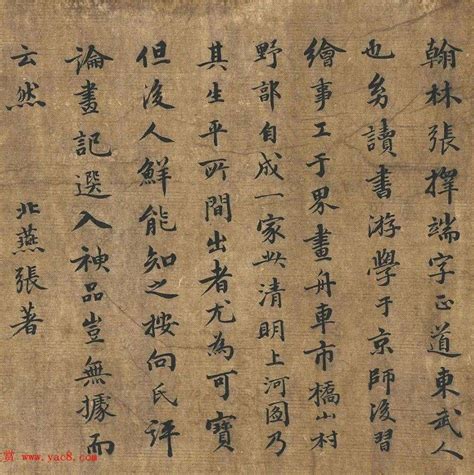 翰林張擇端字正道東武人
也幼讀書游學于京師後習
繪事工于界畫舟車市橋山村
野部自成一家此清明上河图乃
其生平所間出者尤為可寶
但後人鮮能知之按向氏評
論畫記選入神品豈無據而
云然 北燕張著
赏 www.yac8.com